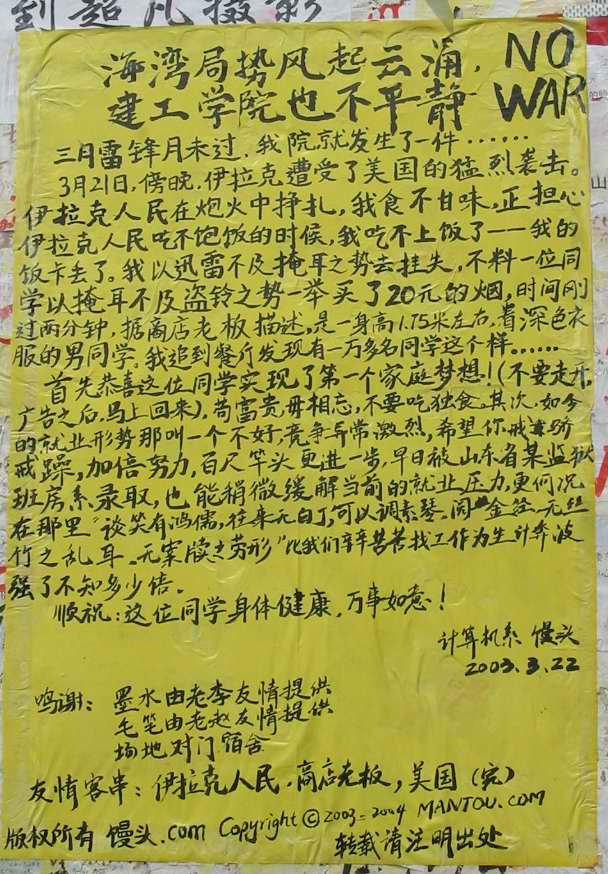 到超凡摄影
海湾局势风起云涌，
建工学院也不平静
NO
WAR
三月雷锋月未过，我院就发生了一件……
3月21日，傍晚，伊拉克遭受了美国的猛烈袭击。
伊拉克人民在炮火中挣扎，我食不甘味，正担心
伊拉克人民吃不饱饭的时候，我吃不上饭了——我的
饭卡丢了。我以迅雷不及掩耳之势去挂失，不料一位同
学以掩耳不及盗铃之势一举买了20元的烟，时间刚
过两分钟，据商店老板描述，是一身高1.75米左右，着深色衣
服的男同学。我追到餐厅发现有一万多名同学这个样……
首先恭喜这位同学实现了第一个家庭梦想！（不要走开，
广告之后，马上回来），苟富贵毋相忘，不要吃独食。其次，如今
的就业形势那叫一个不好，竞争异常激烈，希望你戒骄
戒躁，加倍努力，百尺竿头更进一步，早日被山东省某监狱
班房系录取，也能稍微缓解当前的就业压力，更何况
在那里“谈笑有鸿儒，往来无白丁，可以调素琴，阅金经。无丝
竹之乱耳。无案牍之劳形”比我们辛辛苦苦找工作为生计奔波
强了不知多少倍。
顺祝：这位同学身体健康，万事如意！
计算机系 馒头
2003.3.22
鸣谢：墨水由老李友情提供
毛笔由老赵友情提供
场地对门宿舍
友情客串：伊拉克人民，商店老板，美国（完）
版权所有 馒头.com Copyright © 2003-2004 MANTOU.COM
转载请注明出处